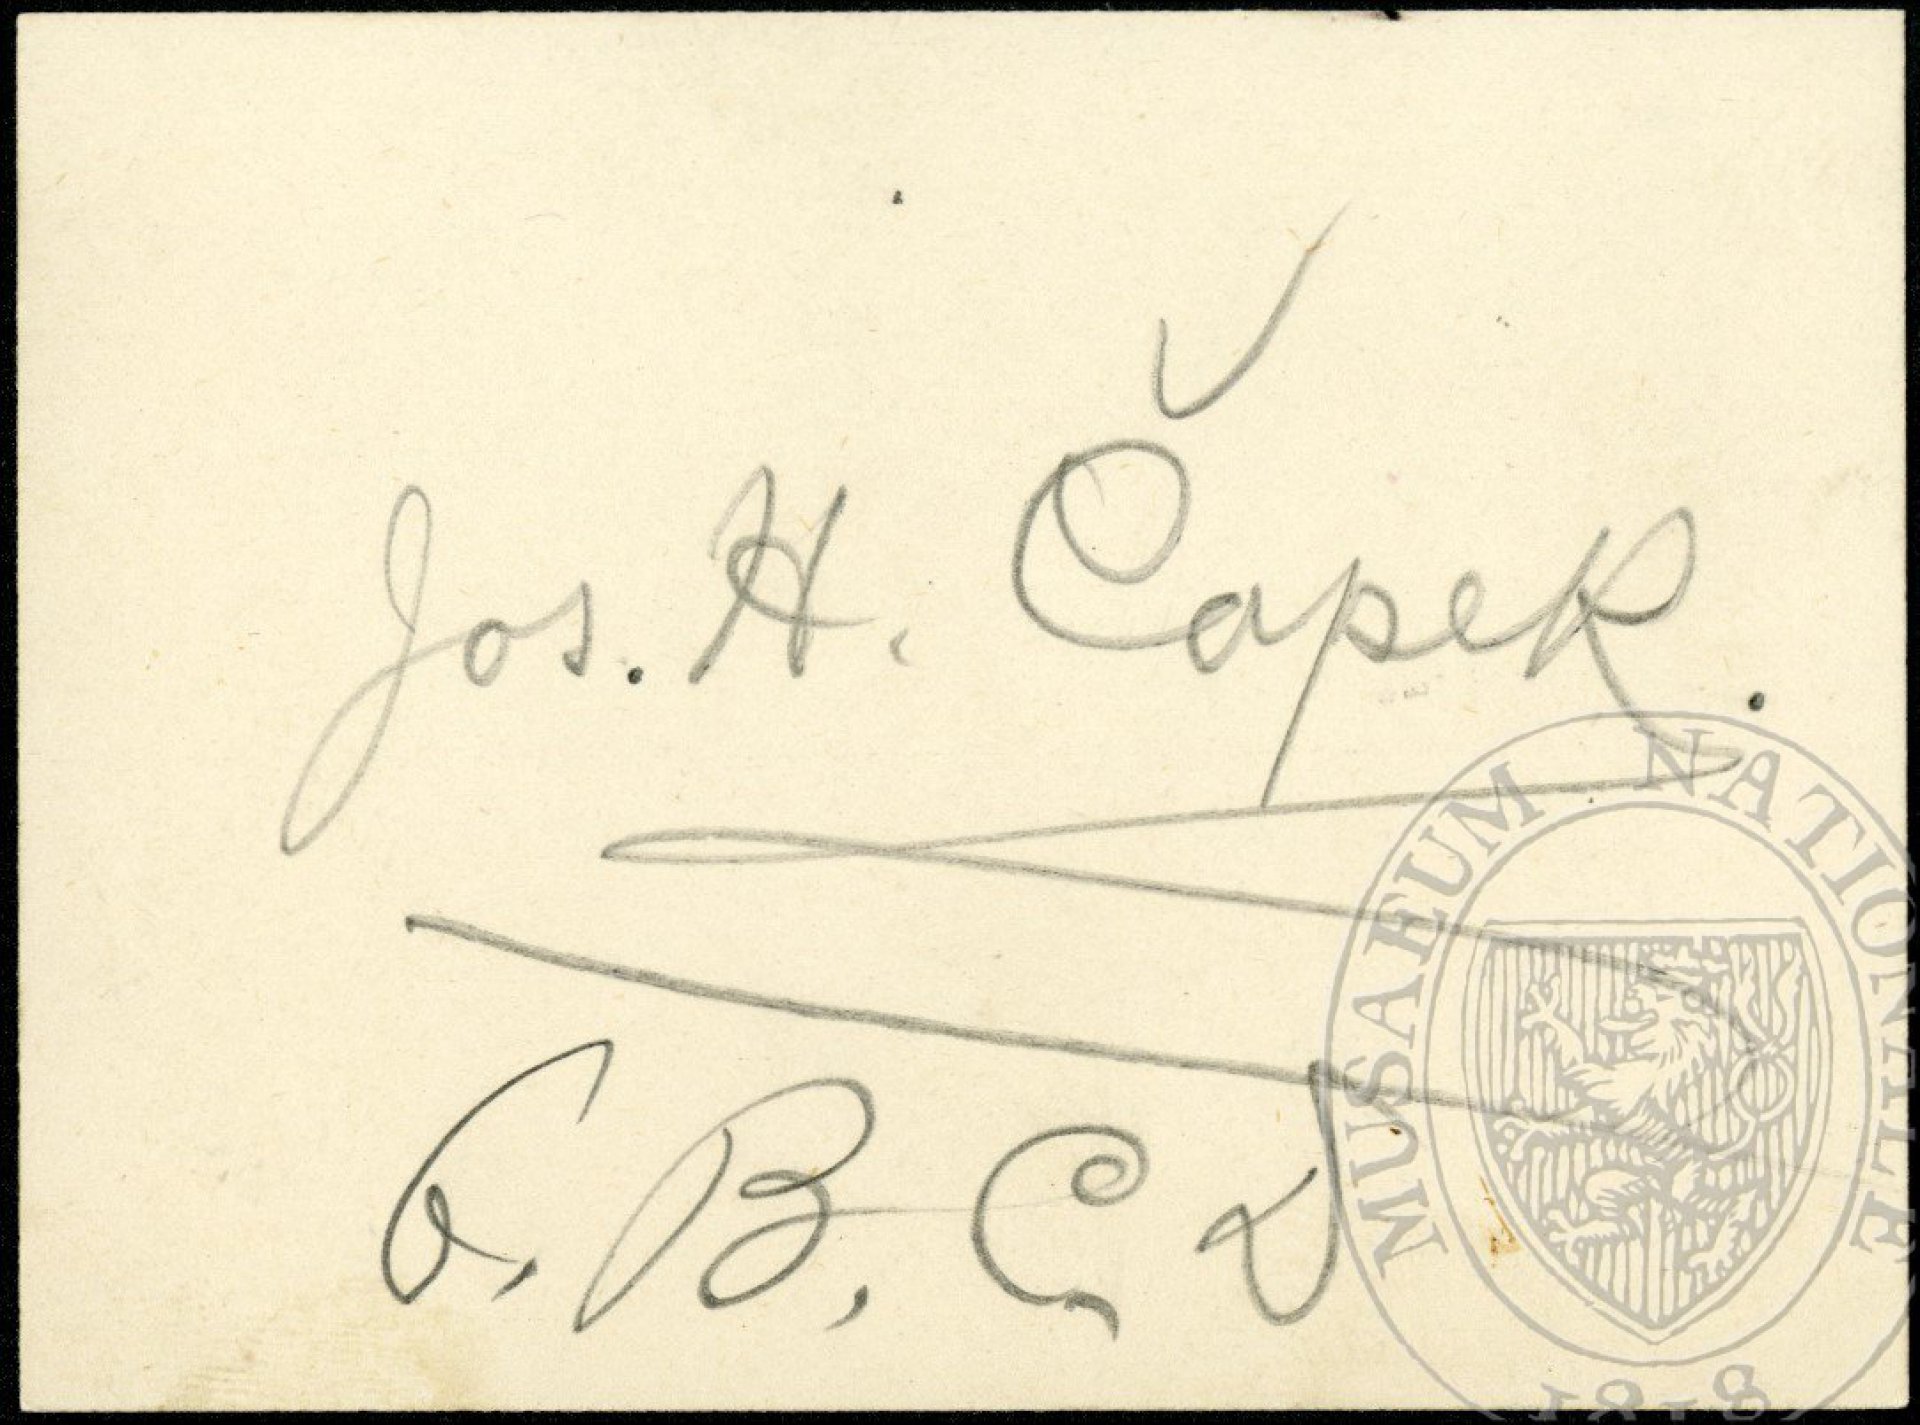 Jos. H. Čapek.
A, B, C, D
MUSAEUM NATIONALE
1818